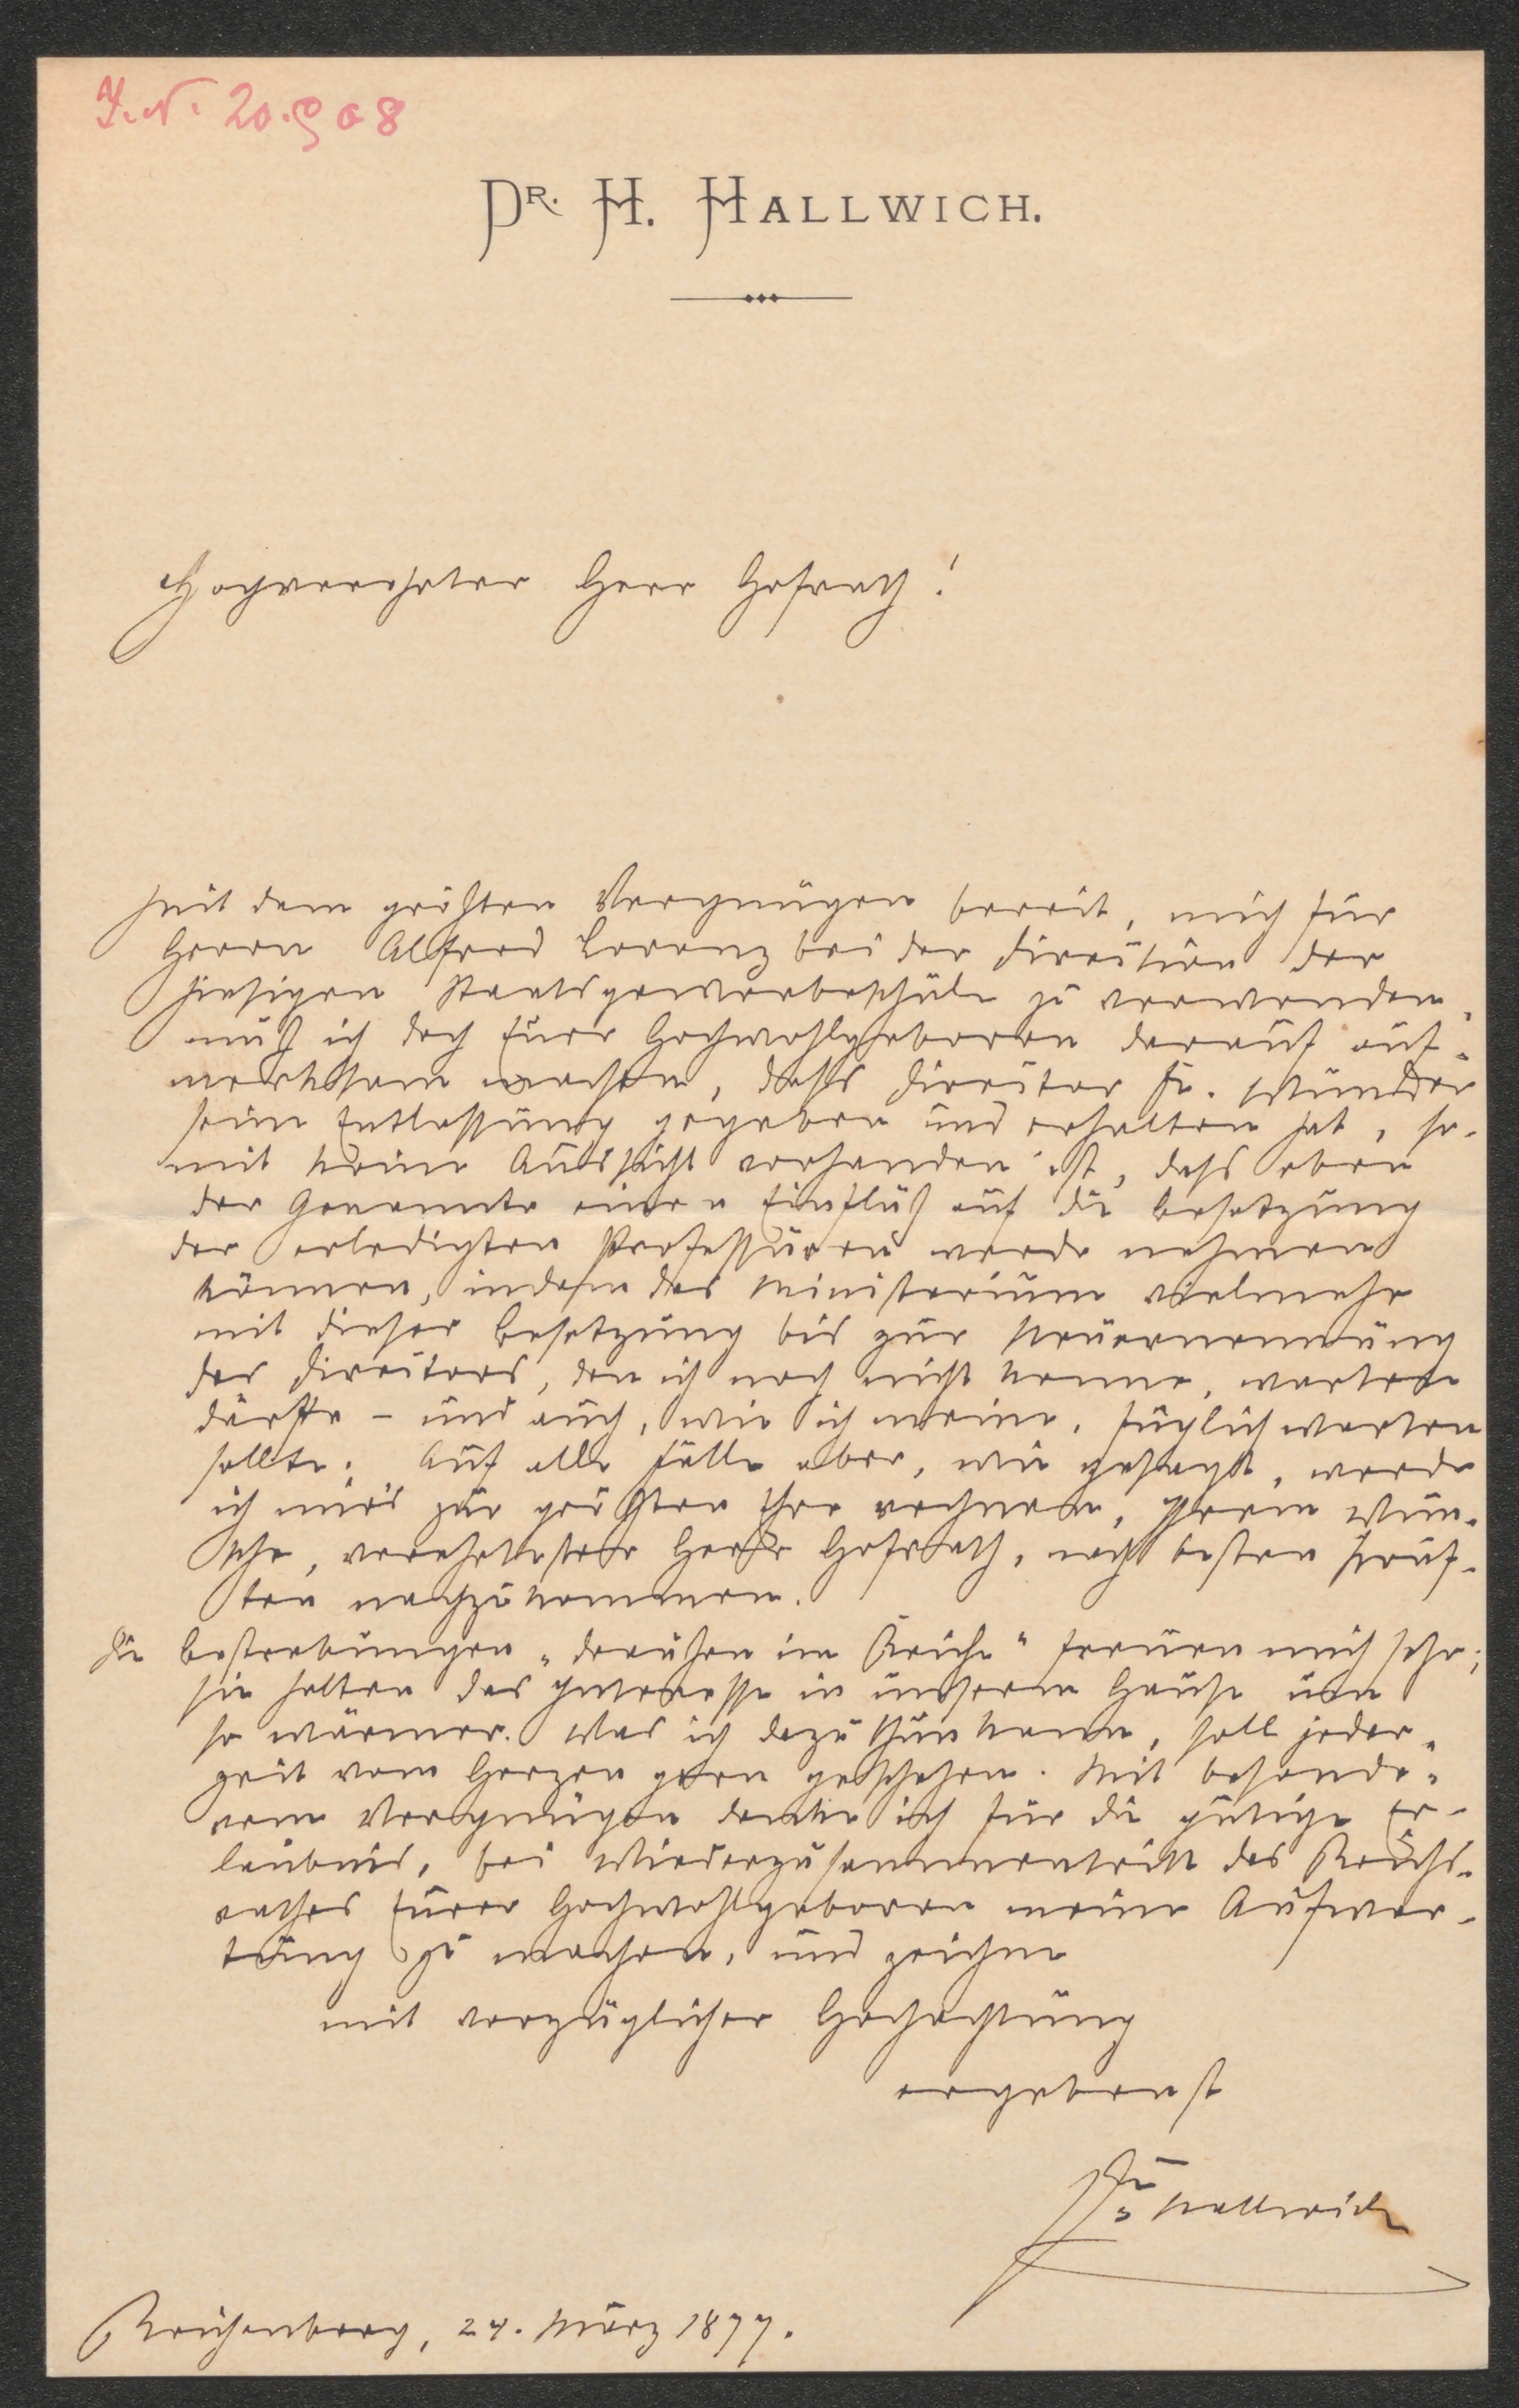 J. N. 20.908
DR. H. HALLWICH.
Hochverehrter Herr Hofrath!
Mit dem größten Vergnügen bereit, mich für
Herrn Alfred Lorenz bei der Direction der
hiesigen Staatsgewerbeschule zu verwenden,
muß ich doch Euer Hochwohlgeboren darauf auf-
merksam machen, dass Director Fr.
seine Entlassung gegeben und erhalten hat, so-
mit keine Aussicht vorhanden ist, dass eben
der Genannte einen Einfluß auf die Besetzung
der erledigten Professuren werde nehmen
können, indem das Ministerium vielmehr
mit dieser Besetzung bis zur Neuernennung
des Directors, den ich noch nicht kenne, warten
dürfte – und auch, wie ich meine, füglich warten
sollte. Auf alle Fälle aber, wie gesagt, werde
ich mir's zur größten Ehre rechnen, Ihrem Wun-
sche, verehrtester Herr Hofrath, nach besten Kräf-
ten nachzukommen.
Die Bestrebungen „draußen im Reiche" freuen mich sehr;
sie halten das Interesse in unserem Hause um
so wärmer. Was ich dazu thun kann, soll jeder-
zeit vom Herzen gern geschehen. Mit besonde-
rem Vergnügen danke ich für die gütige Er-
laubnis, bei Wiederzusammentritt des Reichs-
rathes Eurer Hochwohlgeboren meine Aufwar-
tung zu machen, und zeichne
mit vorzüglicher Hochachtung
ergebenst
Dr Hallwich
Reichenberg, 24. März 1877.